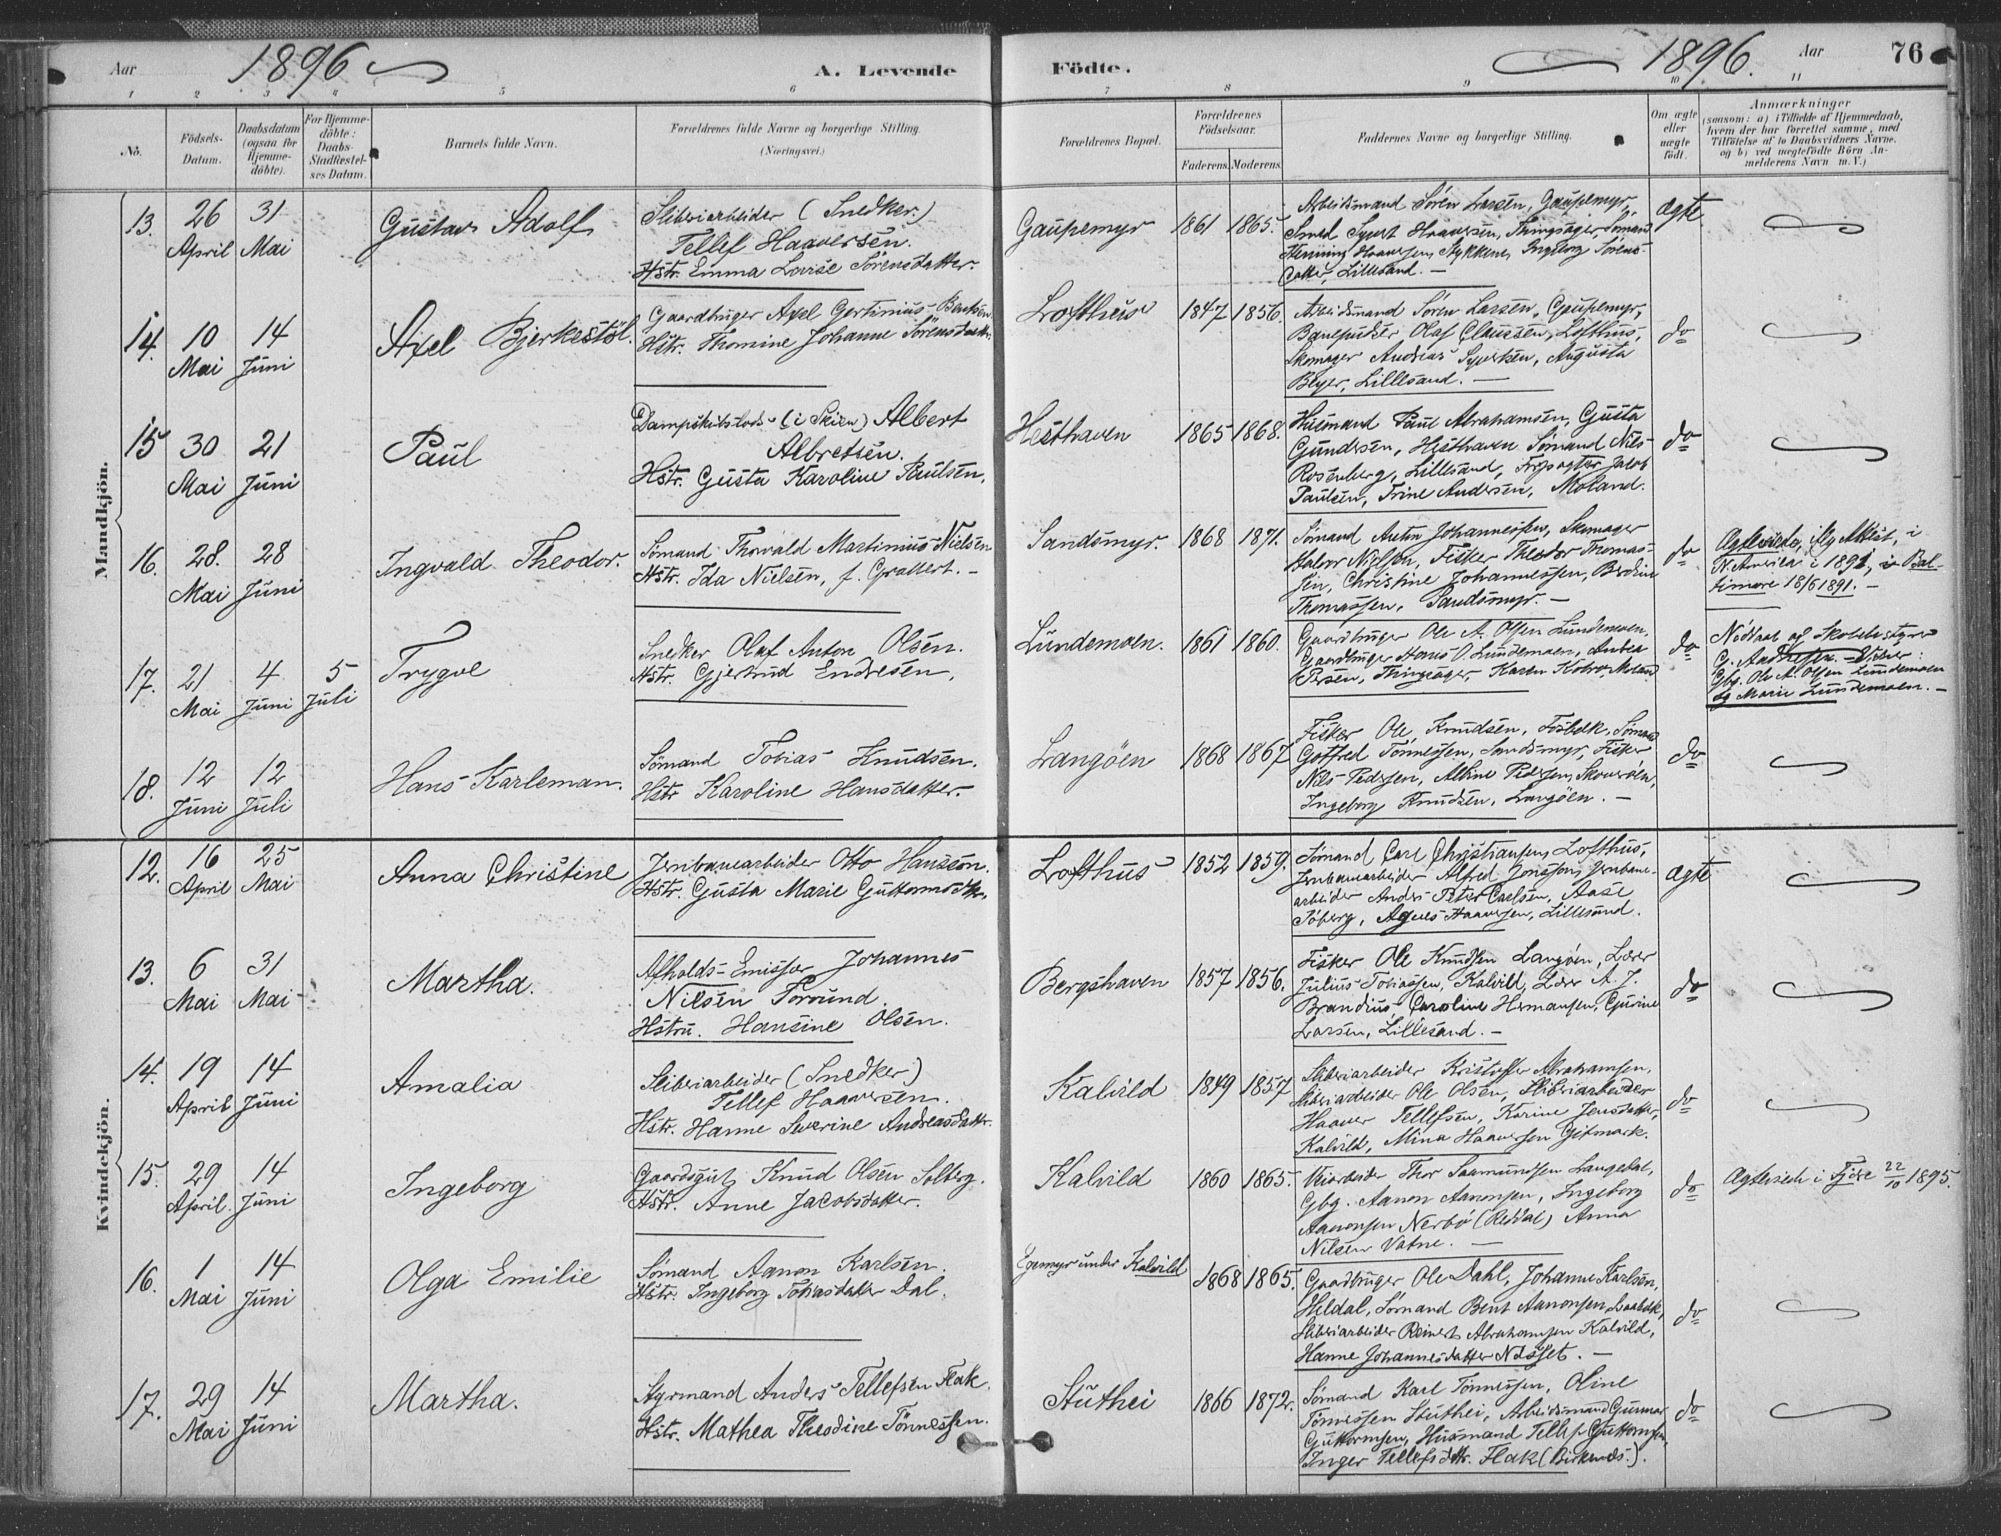 Aar 1896 A. Levende Födte. 1896. Aar 76
1 2 3 4 5 6 7 8 9 10 11
No. Födsels-Datum. Daabsdatum (ogsaa for Hjemmedöbte). For Hjemmedöbte: Daabs-Stadfæstelses Datum. Barnets fulde Navn. Forældrenes fulde Navne og borgerlige Stilling. (Næringsvei.) Forældrenes Bopæl. Forældrenes Födselsaar. Faderens. Moderens. Faddernes Navne og borgerlige Stilling. Om ægte eller uægte födt. Anmærkninger (saasom: a) i Tilfælde af Hjemmedaab, hvem der har forrettet samme, med Tilföielse af to Daabsvidners Navne, og b) ved uægtefödte Börn Anmelderens Navn m. V.)
Mandkjön.
13. 26 April 31 Mai Gustav Adolf
Sliberiarbeider (Snedker.)
Tellef Haaversen.
Hstr. Emma Lovise Sørensdatter.
Gaupemyr 1861 1865.
Arbeidsmand Sören Larsen, Gaupemyr,
Smed Syvert Haaversen, Thingsager Sømand
Henning Haaversen, Stykkene, Ingeborg Sørens-
datter, Lillesand. —
ægte
14. 10 Mai 14 Juni Axel Bjerkestøl.
Gaardbruger Axel Gertinius Bentsen
Hstr. Thomine Johanne Sörensdatter.
Lofthus 1847 1856.
Arbeidsmand Sören Larsen, Gaupemyr,
Banepudser Olaf Claussen, Lofthus,
Skomager Andreas Syvertsen, Augusta
Beyer, Lillesand. —
do
15 30 Mai 21 Juni Paul
Dampskibslods (i Skien) Albert
Albretsen.
Hstr. Gusta Karoline Paulsen.
Hesthaven 1865 1868.
Husmand Paul Abrahamsen, Gusta
Gundersen, Hesthaven Sømand Nils
Rosenberg, Lillesand, Jacob
Paulsen, Trine Andersen, Moland.
do
16. 28. Mai 28 Juni Ingvald Theodor.
Sømand Thorvald Martinius Nielsen
Hstr. Ida Nielsen, f. Grallert. —
Sandsmyr. 1868 1871.
Sømand Johannessen, Skomager
Halvor Nielsen, Fisker Theodor Thomas-
sen, Christine Johannessen, Berdine
Thomassen, Sandsmyr. —
do
Ægteviede, Attest, i
N. Amerika i 1891, i Bal-
timore 18/6 1891. —
17. 21 Mai 4 Juni 5 Juli Trygve
Snedker Olaf Anton Olsen.
Hstr. Gjertrud Endresen,
Lundemoen. 1861 1860.
Gaardbruger Ole A. Olsen Lundemoen,
Gaardbruger Hans O. Lundemoen, Andrea
Persen, Thingsager, Karen Moland
do
Nöddaab af Skolebestyrer
G. Vidner:
Gbg. Ole A. Olsen Lundemoen
og Marie Lundemoen. —
18. 12 Juni 12 Juli Hans Karleman.
Sømand Tobias Knudsen.
Hstr. Karoline Hansdatter.
Langöen 1868 1867
Fisker Ole Knudsen, Fosbæk, Sømand
Gotfred Tönnessen, Sandsmyr, Fisker
Nils Pedersen, Albine Pedersen, Skouröen,
Ingeborg Knudsen, Langöen. —
do
Kvindekjön.
12. 16 April 25 Mai Anna Christine
Jernbanearbeider Otto Hansson.
Hstr. Gusta Marie Guttormsdtr.
Lofthus 1852 1859.
Sømand Carl Christiansen, Lofthus,
Jernbanearbeider Alfred Jonsson, Jernbane-
arbeider Anders Peter Carlsen, Aase
Söberg, Agnes Haaversen, Lillesand.
ægte
13. 6 Mai 31 Mai Martha.
Afholds-Emissær Johannes
Nilsen Torsund.
Hstru. Hansine Olsen.
Bergshaven 1857 1856.
Fisker Ole Knudsen Langöen, Lærer
Julius Tobiassen, Kalvild, Lærer A. J.
Brandsius, Caroline Hermansen, Gurine
Larsen, Lillesand. —
do
14. 19 April 14 Juni Amalia
Sliberiarbeider (Snedker)
Tellef Haaversen.
Hstr. Hanne Severine Andreasdattr.
Kalvild 1849 1857
Sliberiarbeider Kristoffer Abrahamsen,
Sliberiarbeider Ole Olsen, Sliberiarbeider
Haaver Tellefsen, Karine Jensdatter,
Kalvild, Mina Haaversen Gitmark.
do
15. 29 April 14 Juni Ingeborg
Gaardsgut Knud Olsen Solberg.
Hstr. Anne Jacobsdatter.
Kalvild 1860 1865.
Thor Saamundsen Langedal,
Gbg. Aanon Aanonsen, Ingeborg
Aanonsen Nerbö (Reddal) Anna
Nilsen Vatne. —
do
Ægteviede i Fjære 22/10 1895.
16. 1 Mai 14 Juni Olga Emilie
Sømand Aanon Karlsen.
Hstr. Ingeborg Tobiasdatter Dal.
under Kalvild 1868 1865.
Gaardbruger Ole Dahl, Johanne Karlsen,
Heldal, Sømand Bent Aanonsen,
Sliberiarbeider Reinert Abrahamsen Kalvild,
Hanne Johannesdatter —
do
17. 29 Mai 14 Juni Martha.
Styrmand Anders Tellefsen Flak.
Hstr. Mathea Theodine Tönnessen.
Stuthei 1866 1872.
Sømand Karl Tönnessen, Oline
Tönnessen Stuthei, Arbeidsmand Gunnar
Guttormsen, Husmand Tellef Guttormsen,
Inger Tellefsdtr. Flak (Birkenes.).
do